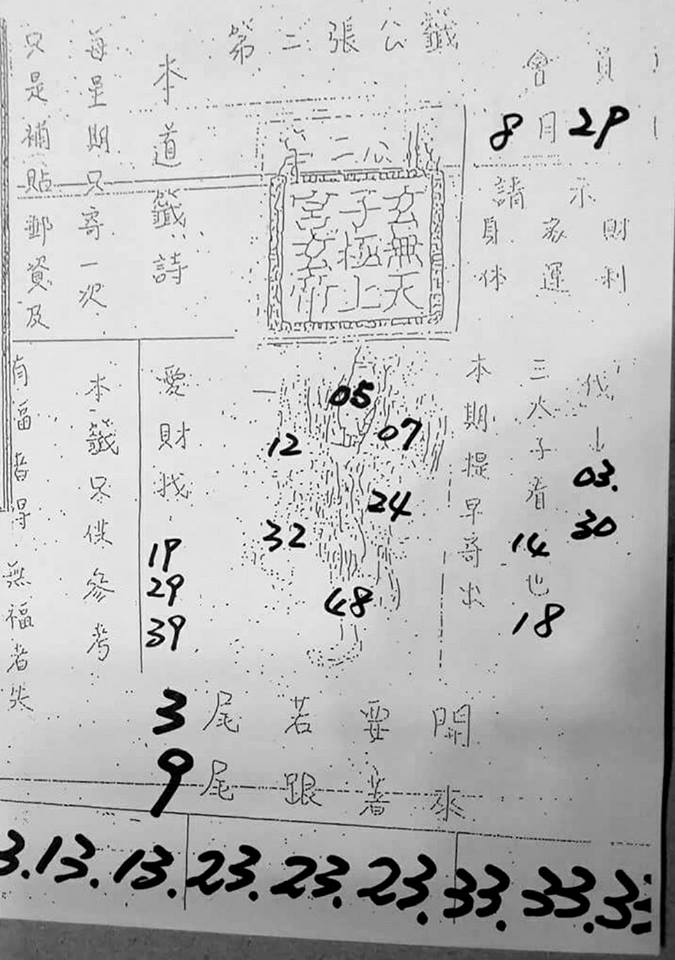 第二張公籤
會員
8月29
請示
財利
家運
身体
公二
玄無天
子極上
宮玄竹
本道籤詩
每星期只寄一次
只是補貼郵資及
三八子看14也18
03.
30
本期提早寄出
05
12
07
24
32
48
愛財找
19
29
39
本籤只供參考
有福者得無福者失
3尾若要開
9尾跟著來
3.13.13.23.23.23.33.33.3